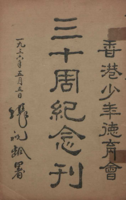 香港少年德育會
三十周紀念刊
一九三六年五月五日
署